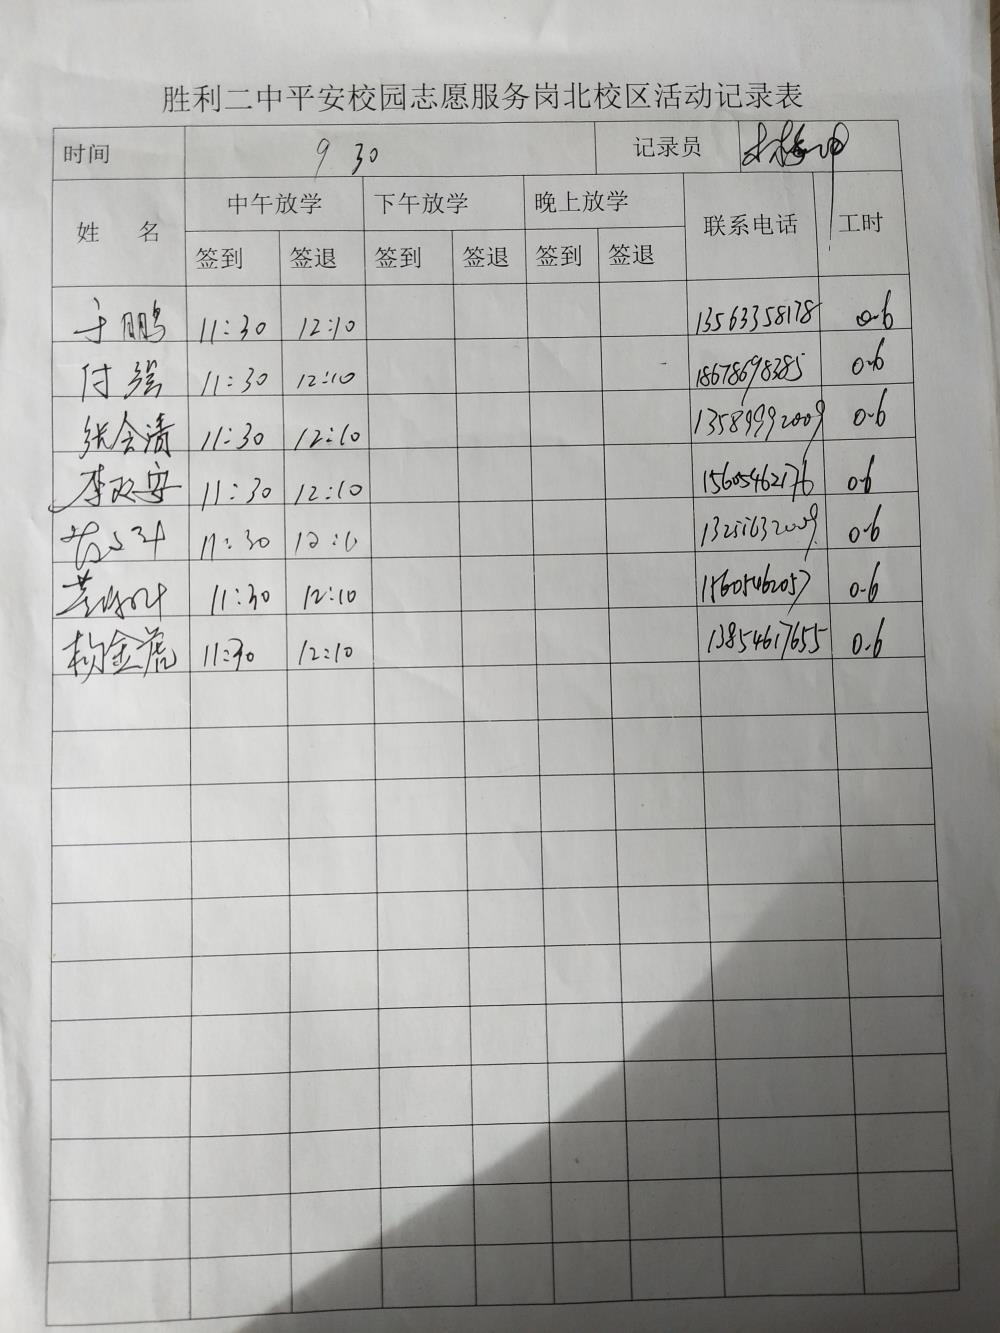 胜利二中平安校园志愿服务岗北校区活动记录表
时间 9.30 记录员
姓 名 中午放学 下午放学 晚上放学 联系电话 工时
签到 签退 签到 签退 签到 签退
于鹏 11:30 12:10 13563358178 0.6
付强 11:30 12:10 18678698385 0.6
张会清 11:30 12:10 13589992009 0.6
李政安 11:30 12:10 15605462176 0.6
11:30 13255632009 0.6
11:30 12:10 15605462057 0.6
杨金虎 11:30 12:10 13854617655 0.6